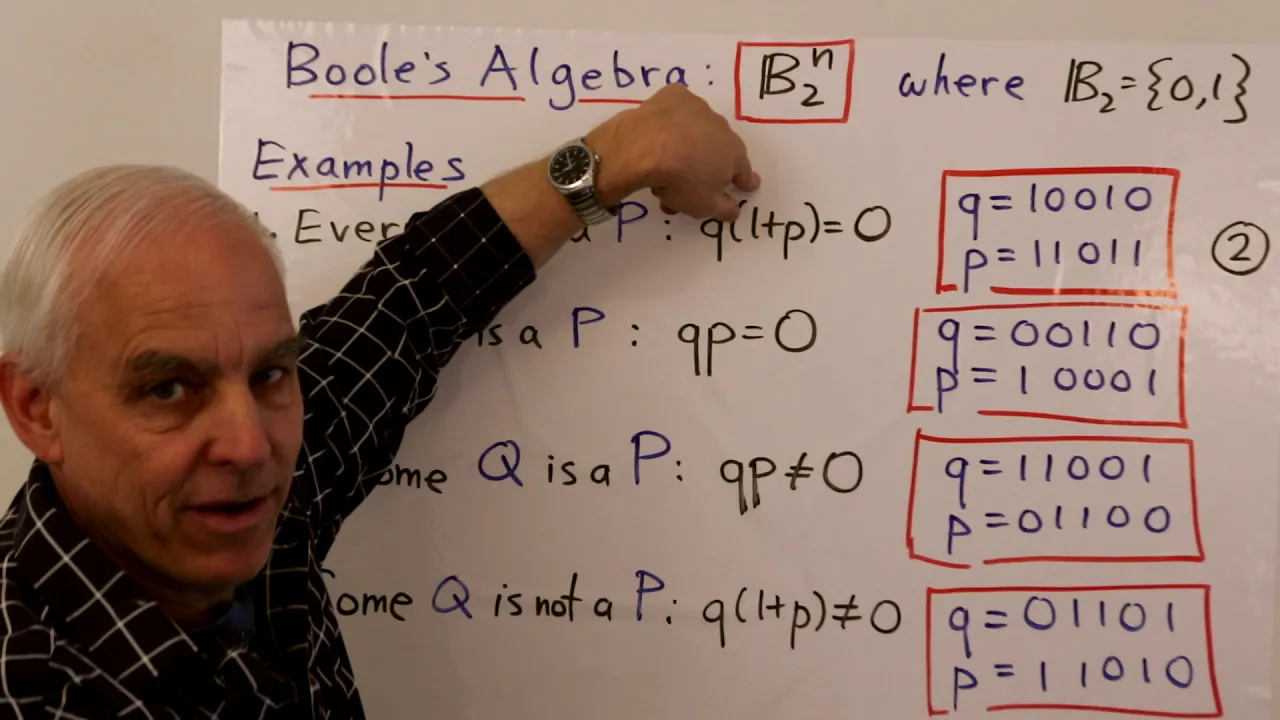 Boole's Algebra: 𝔹₂ⁿ where 𝔹₂={0,1}
Examples
P: q(1+p)=0
q=10010
p=11011
②
is a P : qp=0
q=00110
p=10001
Q is a P: qp≠0
q=11001
p=01100
Q is not a P: q(1+p)≠0
q=01101
p=11010